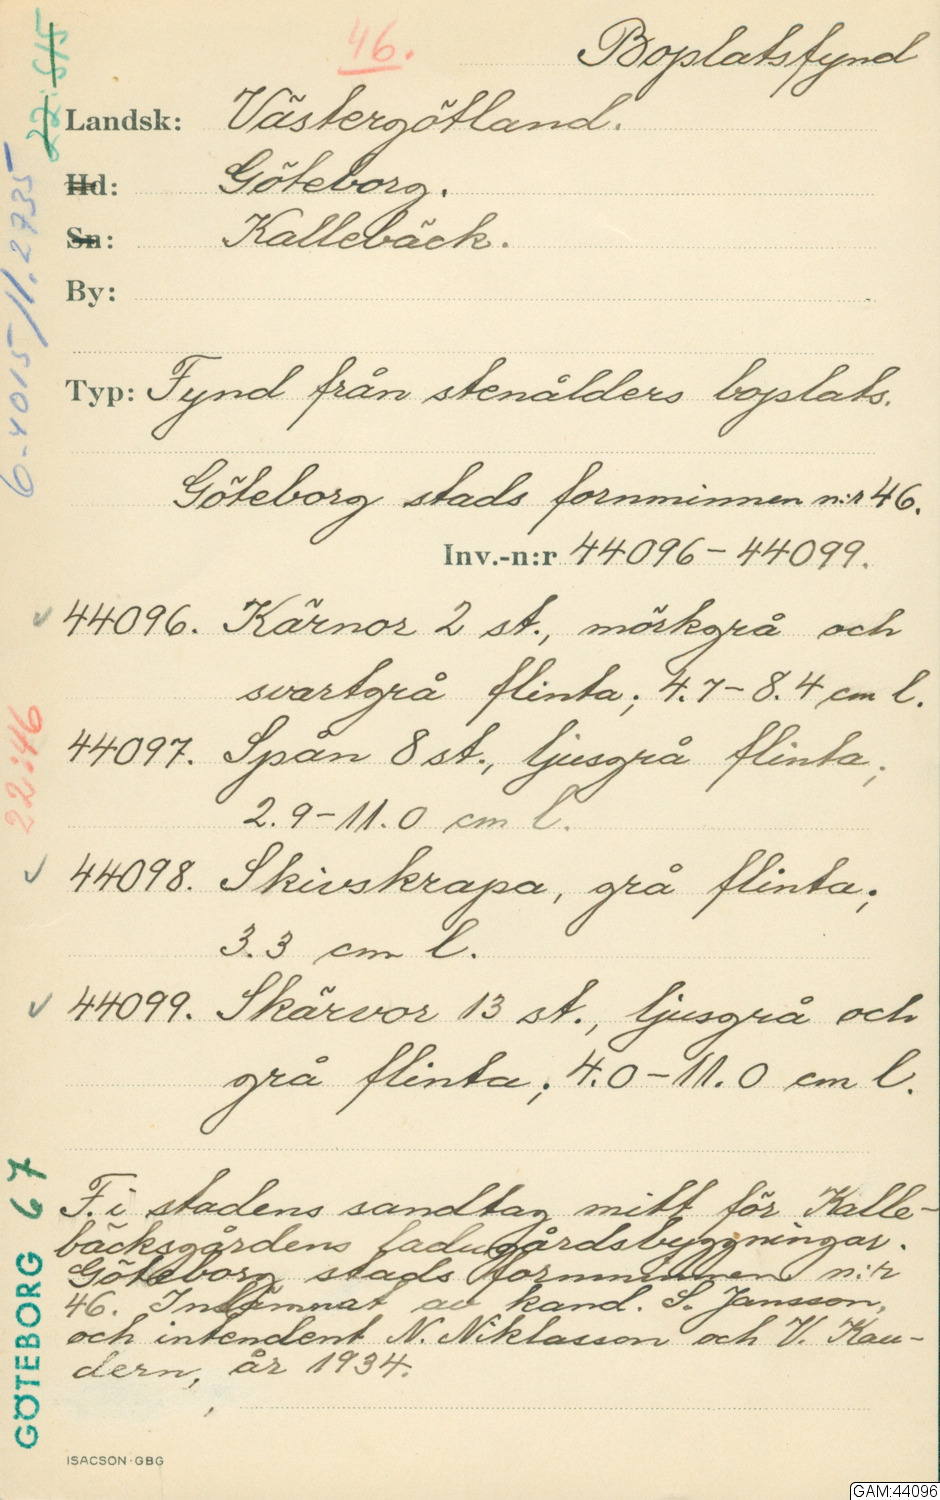 46.
Boplatsfynd
22:515
Landsk: Västergötland.
Hd: Göteborg.
Sn: Kallebäck.
By:
6-4015/11.2735
Typ: Fynd från stenålders boplats.
Göteborg stads fornminnen n:r 46.
Inv.-n:r 44096-44099.
44096. Kärnor 2 st., mörkgrå och
svartgrå flinta; 4.7-8.4 cm l.
22:46
44097. Spån 8 st., ljusgrå flinta;
2.9-11.0 cm l.
44098. Skivskrapa, grå flinta;
3.3 cm l.
44099. Skärvor 13 st., ljusgrå och
grå flinta; 4.0-11.0 cm l.
F. i stadens sandtag mitt för Kalle-
bäcksgårdens ladugårdsbyggningar.
Göteborg stads fornminnen n:r
46. Inlämnat av kand. S. Jansson,
och intendent N. Niklasson och V. Kau-
dern, år 1934.
GÖTEBORG 67
ISACSON-GBG
GAM:44096